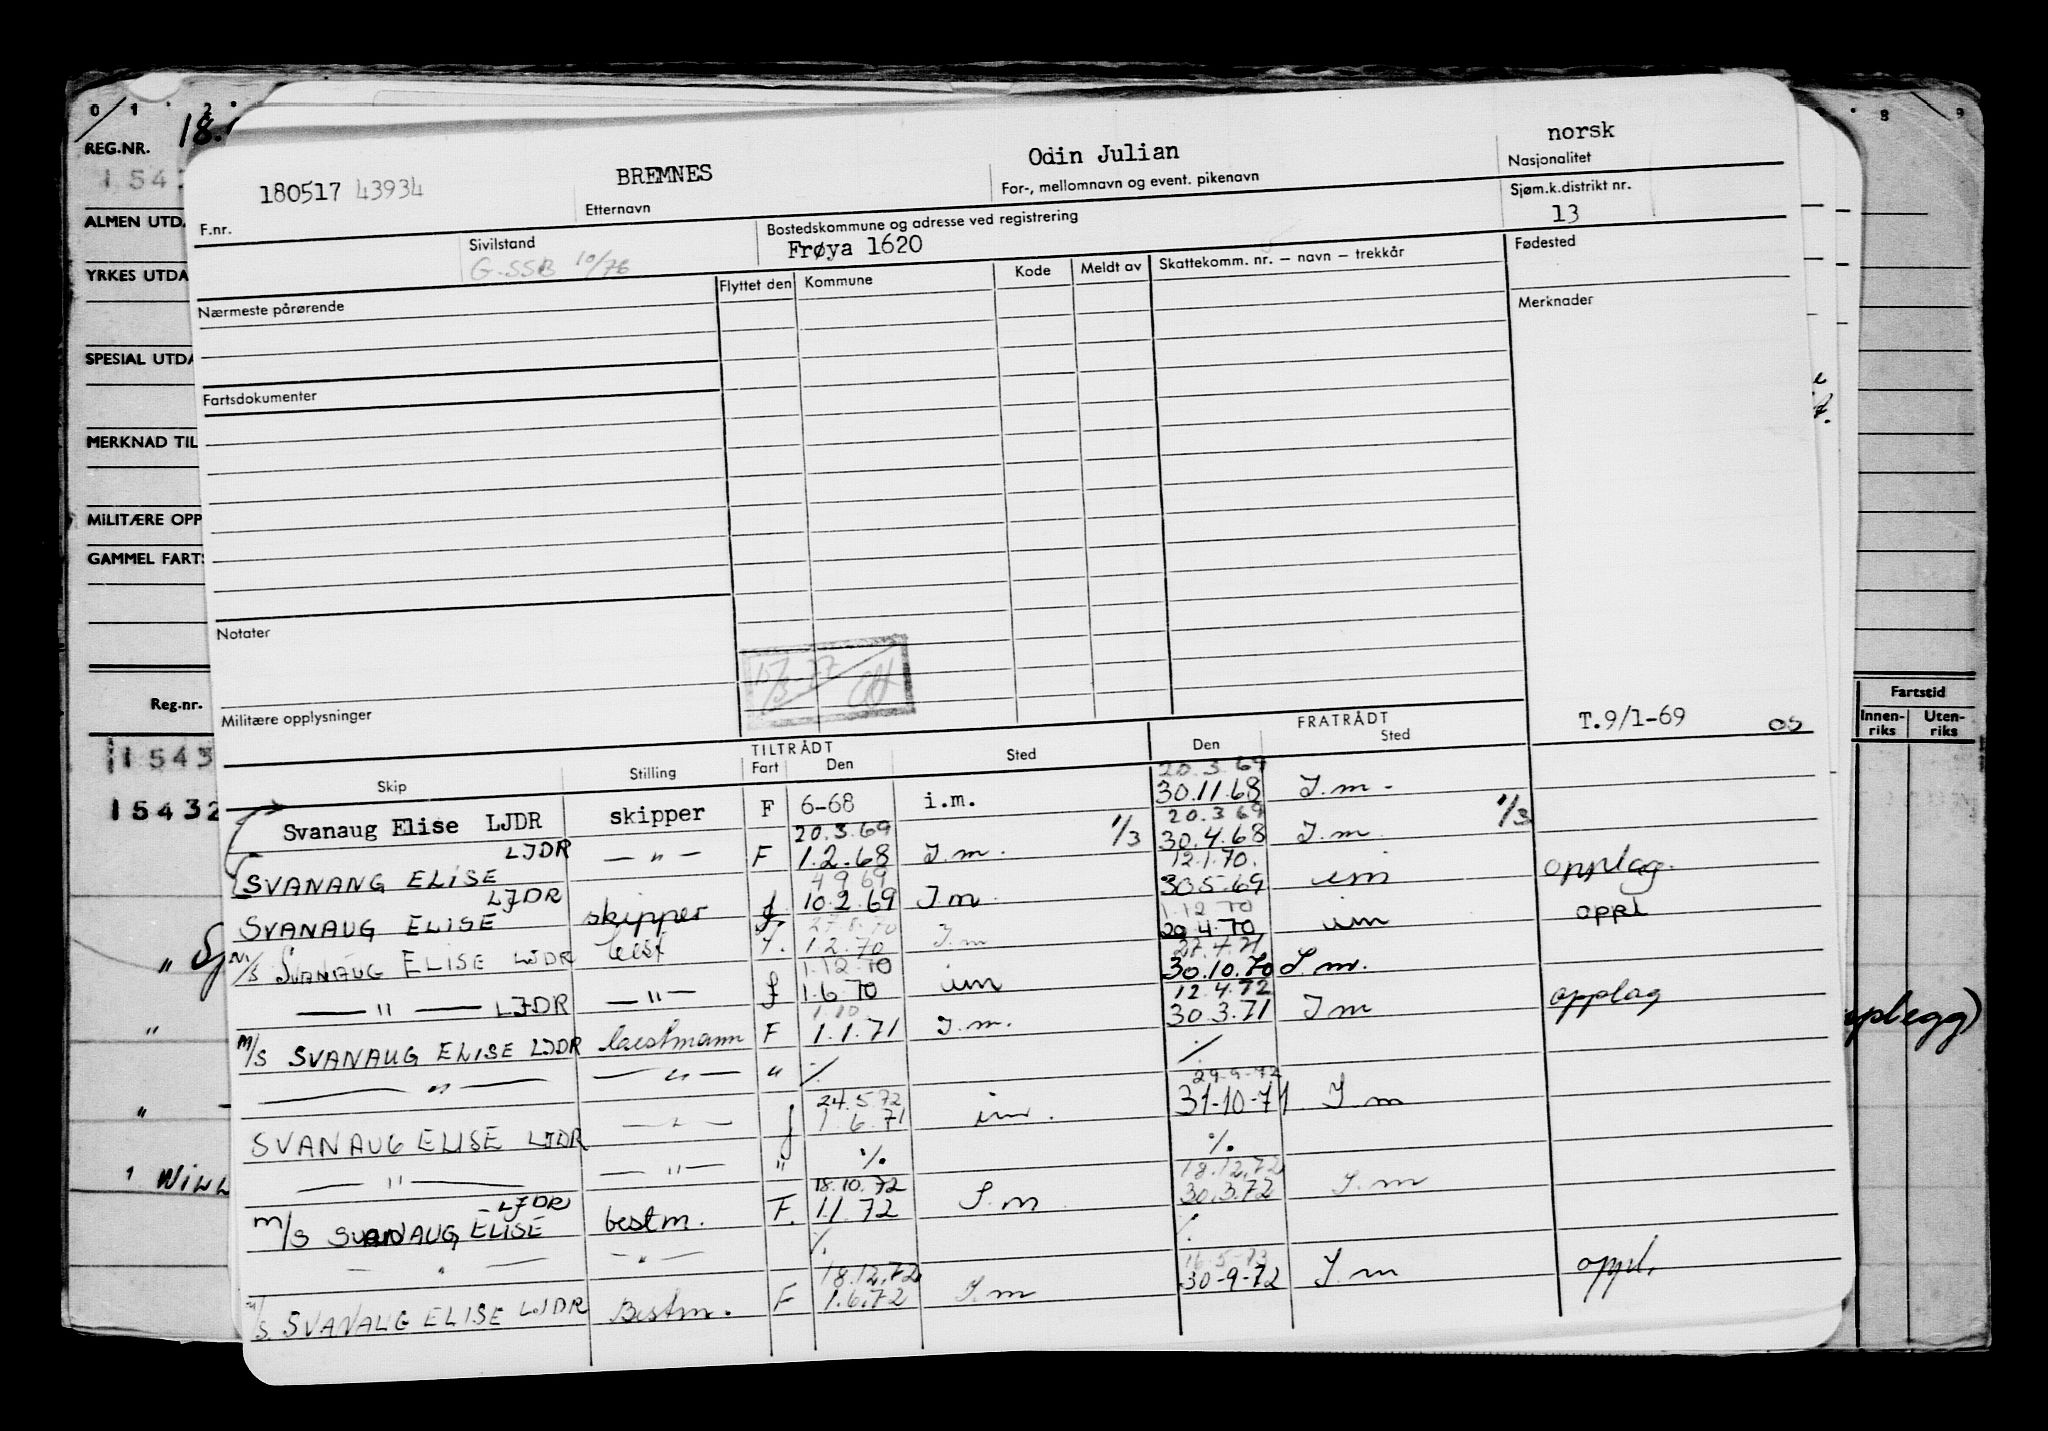 0 1 2 8 9
REG.NR. 18.
1543
ALMEN UTDA
YRKES UTDA
SPESIAL UTDA
MERKNAD TIL
MILITÆRE OPP
GAMMEL FARTS
Reg.nr.
1543
15432
"
"
"
WILL
Fartstid
Innen-riks Uten-riks
plegg)
180517 43934 BREMNES Odin Julian norsk
F.nr. Etternavn For-, mellomnavn og event. pikenavn Nasjonalitet
Sivilstand Bostedskommune og adresse ved registrering Sjøm.k.distrikt nr.
G.SSB 10/76 Frøya 1620 13
Nærmeste pårørende Flyttet den Kommune Kode Meldt av Skattekomm. nr. – navn – trekkår Fødested
Merknader
Fartsdokumenter
Notater
15/3-77
Militære opplysninger
TILTRÅDT FRATRÅDT T.9/1-69 os
Skip Stilling Fart Den Sted Den Sted
20.3.69
Svanaug Elise LJDR skipper F 6-68 i.m. 30.11.68 I.m.
20.3.69 20.3.69
SVANANG ELISE LJDR — " — F 1.2.68 I.m. 1/3 30.4.68 I.m. 1/3
4.9.69 12.1.70.
SVANAUG ELISE LJDR skipper f 10.2.69 I.m. 30.5.69 im opplag.
27.8.70 1.12.70
M/S SVANAUG ELISE LJDR best F. 1.2.70 I.m 20.4.70 im oppl
1.12.70 27.4.71
— " — LJDR — " — f 1.6.70 im 30.10.70 I.m.
1.10 12.4.72
M/S SVANAUG ELISE LJDR bestmann F 1.1.71 I.m. 30.3.71 I m opplag
— " — — " — " % %
24.5.72 29.9.72
SVANAUG ELISE LJDR — " — f 1.6.71 im. 31-10-71 I.m
— " — — " — " % %
18.10.72 18.12.72
M/S SVANAUG ELISE LJDR bestm. F. 1.1.72 I.m 30.3.72 I.m
— " — — " — % %
18.12.72 16.5-73
M/S. SVANAUG ELISE LJDR Bestm. F 1.6.72 I.m 30-9-72 I.m oppl.